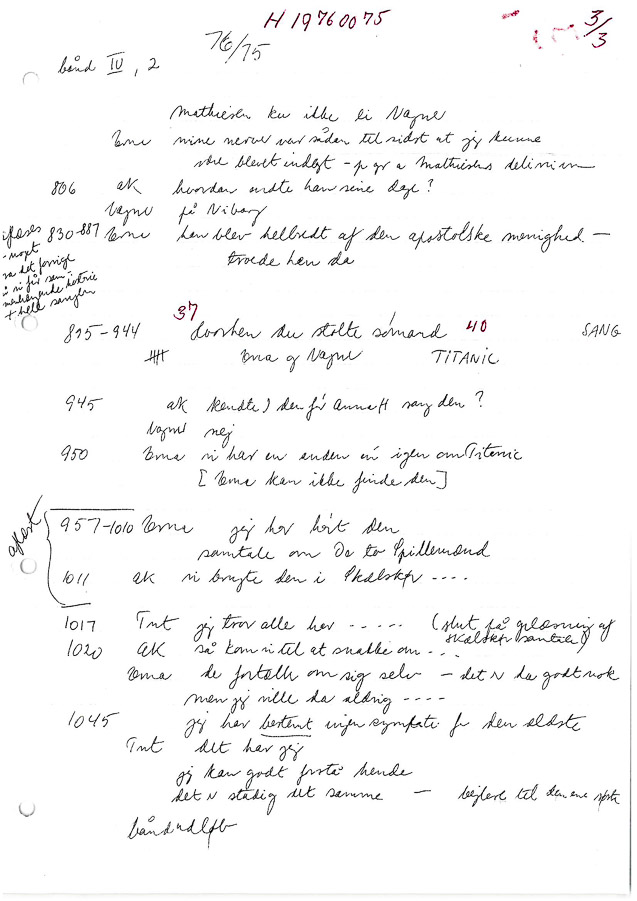 H 19760075
3/3
76/75
bånd IV, 2
Mathiesen ku ikke li Vagner
Erna mine nerver var sådan til sidst at jeg kunne
være blevet indlagt - p gr a Mathiesens delirium
806 AK hvordan endte han sine dage?
Vagner på Niborg
830-887 Erna han blev helbredt af den apostolske menighed —
troede han da
aflæses
det forrige
vi får
historie
+ hele sangen
37
895-944 Hvorhen du stolte sømand 40 SANG
Erna og Vagner TITANIC
945 AK kendte I den før Anna H sang den?
Vagner nej
950 Erna vi har en anden én igen om Titanic
[Erna kan ikke finde den]
aflæst
957-1010 Erna jeg har hørt den
samtale om De to Spillemænd
1011 AK vi brugte den i Skælskør ....
1017 Tnt jeg tror alle har ..... (slut på oplæsning af
Skælskør samtale)
1020 AK så kom vi til at snakke om ...
Erna de fortalte om sig selv — det er da godt nok
men jeg ville da aldrig ....
1045 jeg har bestemt ingen sympati f den ældste
Tnt det har jeg
jeg kan godt forstå hende
det er stadig det samme — bejlere til den ene
bånd udløb